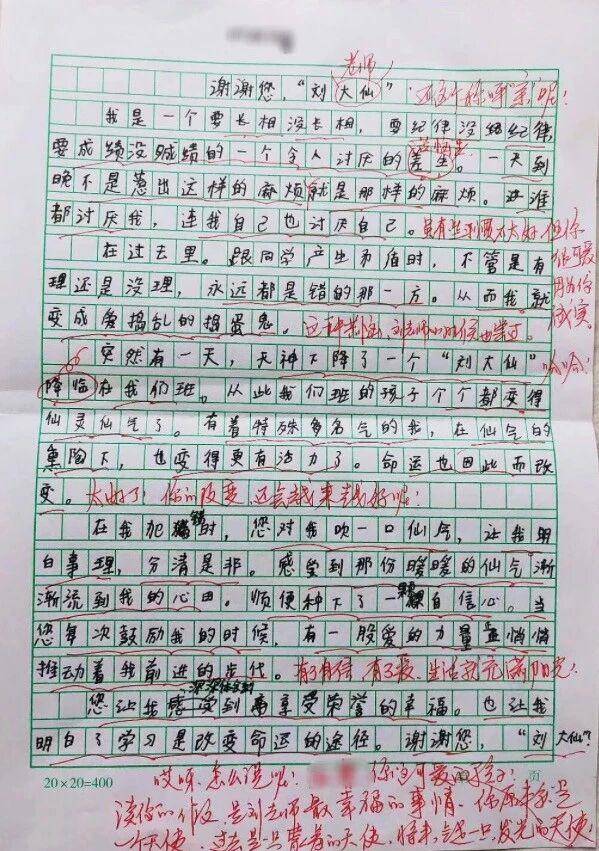 老师
谢谢您，“刘大仙” 这个称呼“亲”呢！
我是一个要长相没长相，要纪律没纪律，
要成绩没成绩的一个令人讨厌的差生。一天到
晚不是惹出这样的麻烦就是那样的麻烦。谁
都讨厌我，连我自己也讨厌自己。
在过去里。跟同学产生矛盾时，不管是有
理还是没理，永远都是错的那一方。从而我就
变成爱捣乱的捣蛋鬼。
突然有一天，天神下降了一个“刘大仙” 哈哈！
降临在我们班。从此我们班的孩子个个都变得
仙灵仙气了。有着特殊多名气的我，在仙气的
熏陶下，也变得更有活力了。命运也因此而改
变。太好了！你的改变，还会越来越好啦！
在我犯错时，您对我吹一口仙气，让我明
白事理，分清是非。感受到那份暖暖的仙气渐
渐流到我的心田。顺便种下了一颗自信心。当
您每次鼓励我的时候，有一股爱的力量悄悄
推动着我前进的步伐。有了自信，有了爱，生活就充满阳光！
您让我深深体会到享受荣誉的幸福。也让我
明白了学习是改变命运的途径。谢谢您，“刘大仙”！
20×20=400 页
哎呀，怎么说呢！你这可爱的孩子！
读你的作文，是刘老师最幸福的事情，你原来就是
一个天使，过去是一只蒙着的天使，将来，是一只发光的天使！